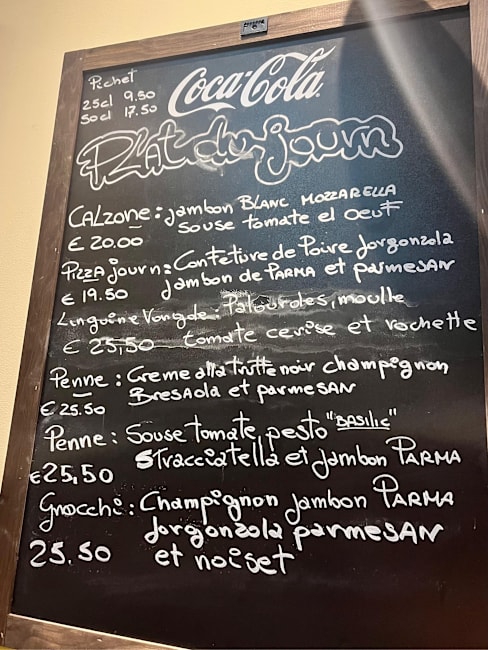 Pichet
25cl 9.50
50cl 17.50
Coca-Cola
PLAt du journ
CALZone: jambon BLANC MOZZARELLA
souse tomate el oeuf
€ 20.00
PIZZA journ: Confetture de Poire Jorgonzola
€ 19.50 jambon de PARMA et parmeSAN
Linguine Vongole: Palourdes, moulle
€ 25,50 tomate cerise et rochette
Penne: Creme alla truffe noir champignon
€ 25.50 BresAola et parmeSAN
Penne: Souse tomate, pesto "BASILIC"
Straceiatella et jambon PARMA
€25,50
Gnocchi: Champignon jambon PARMA
Jorgonzola parmeSAN
25.50 et noiset